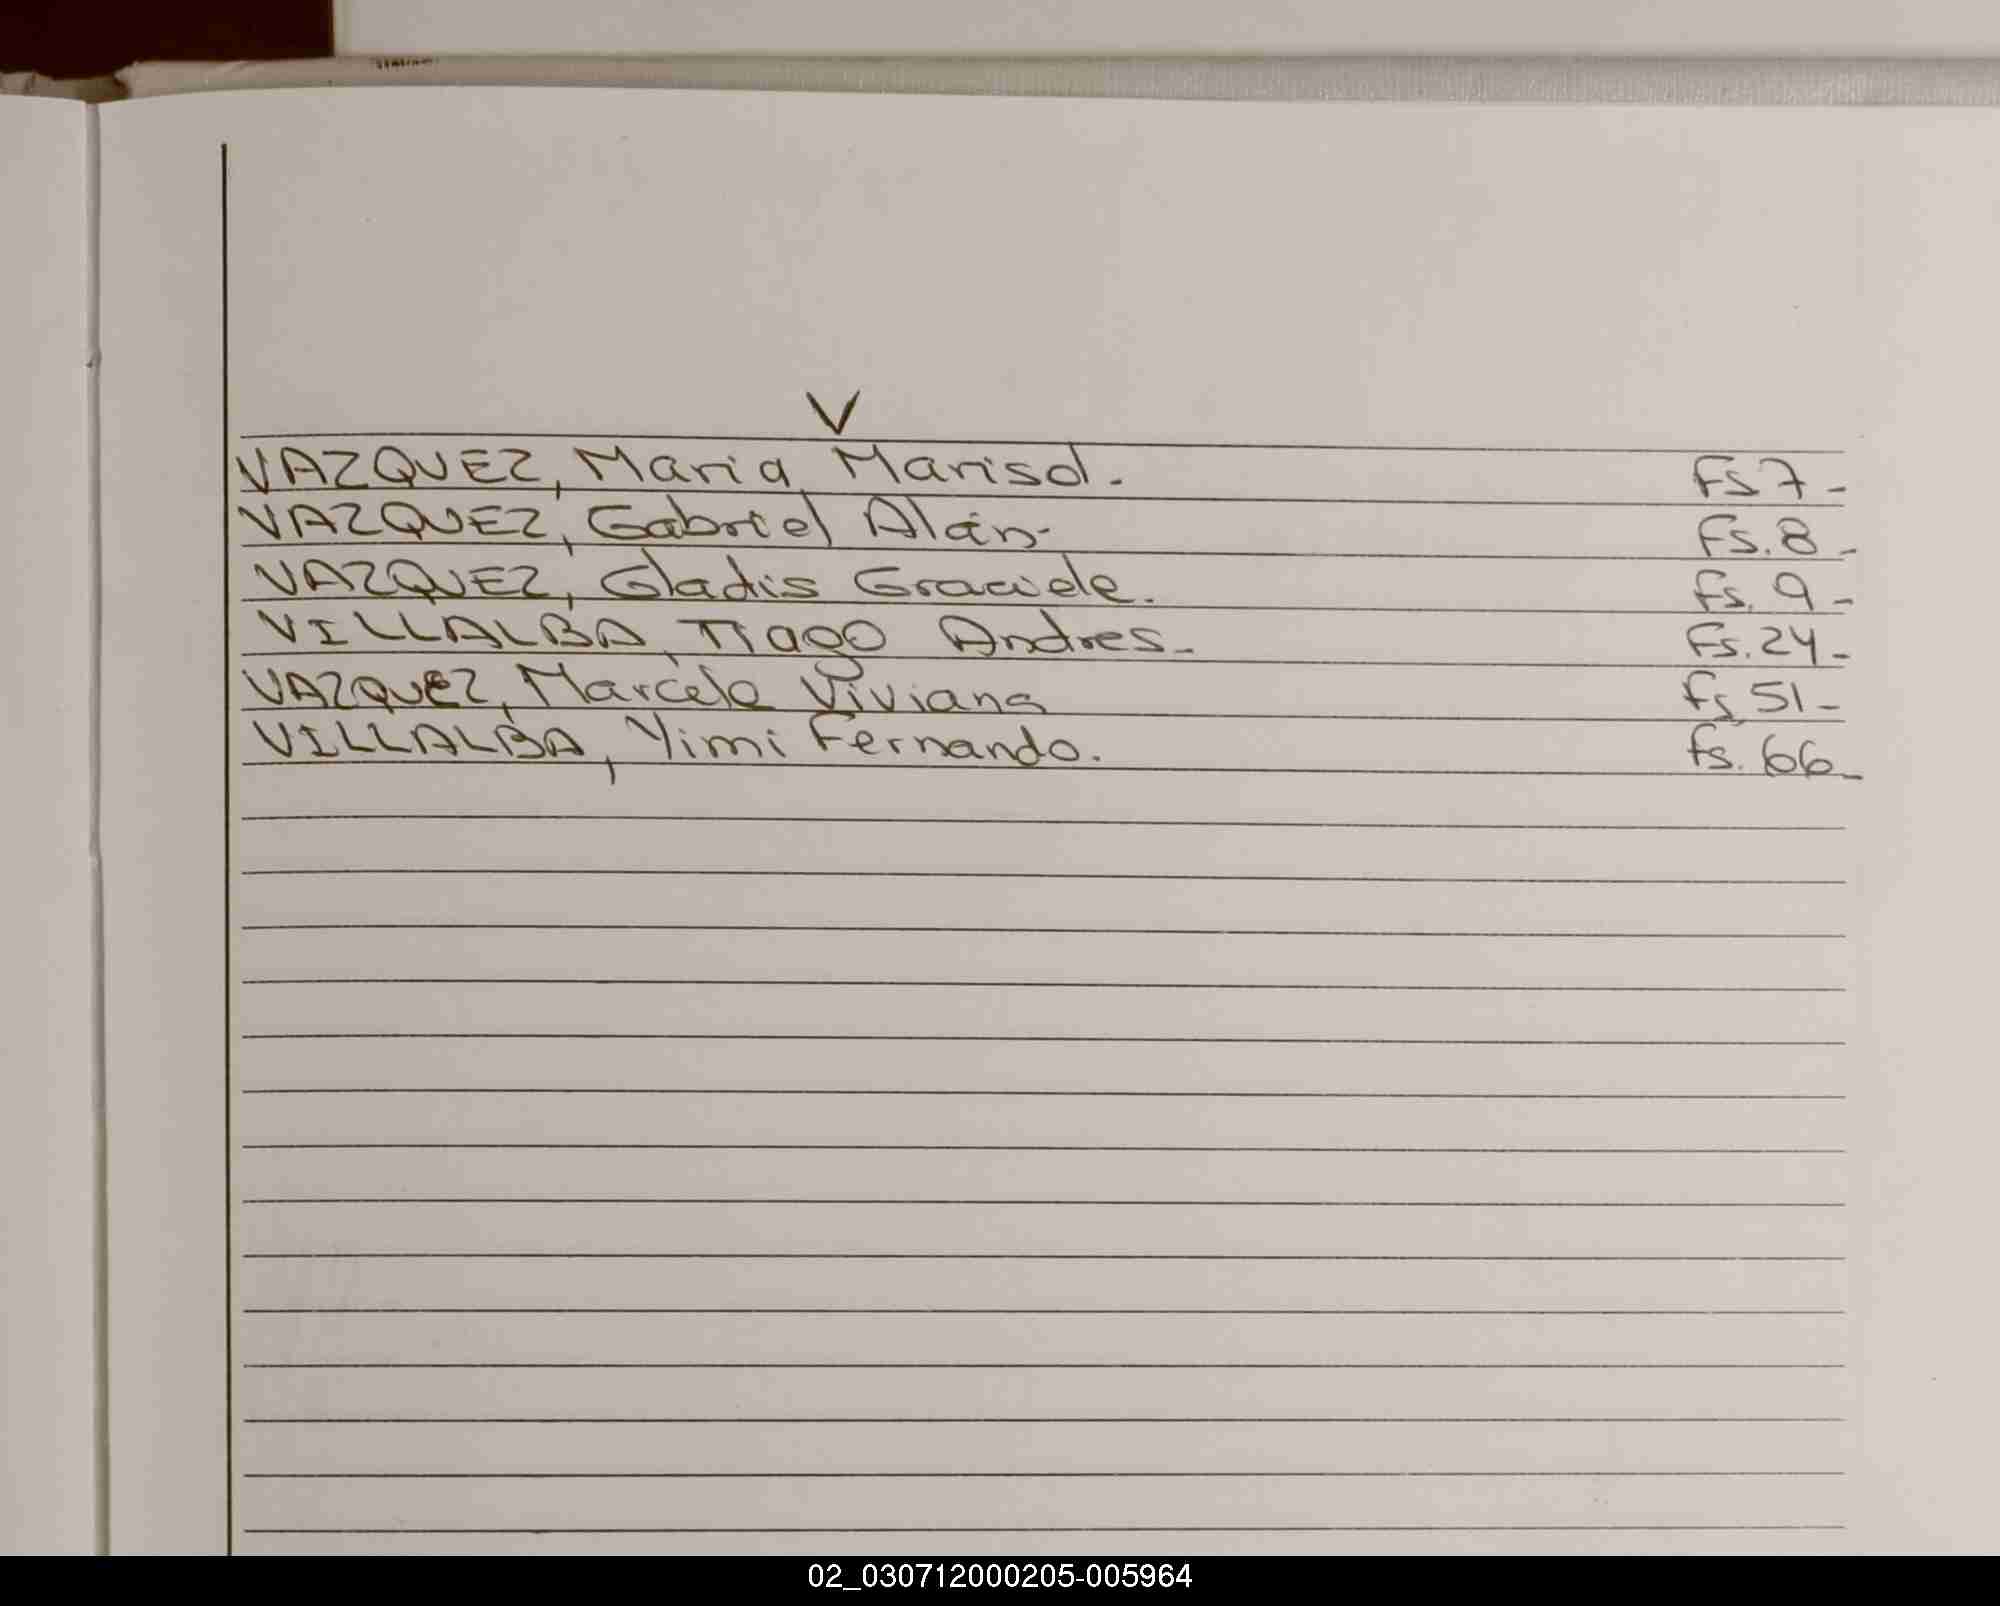 V
VAZQUEZ, Maria Marisol. Fs 7-
VAZQUEZ, Gabriel Alán- Fs. 8-
VAZQUEZ, Gladis Graciela. Fs. 9-
VILLALBA, Tiago Andres- Fs. 24-
VAZQUEZ, Marcela Viviana Fs 51-
VILLALBA, Yimi Fernando. Fs. 66-
02_030712000205-005964